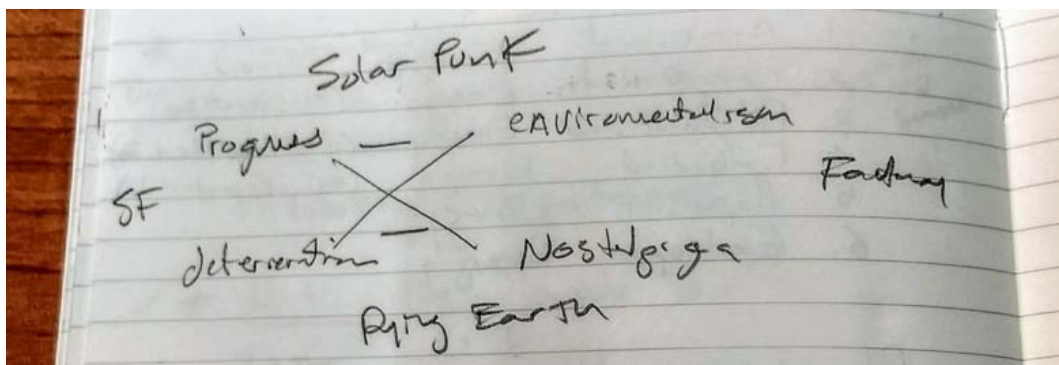 Solar Punk
Progress — enviromentalism
SF
deterieration — Nostalgiga
Dying Earth